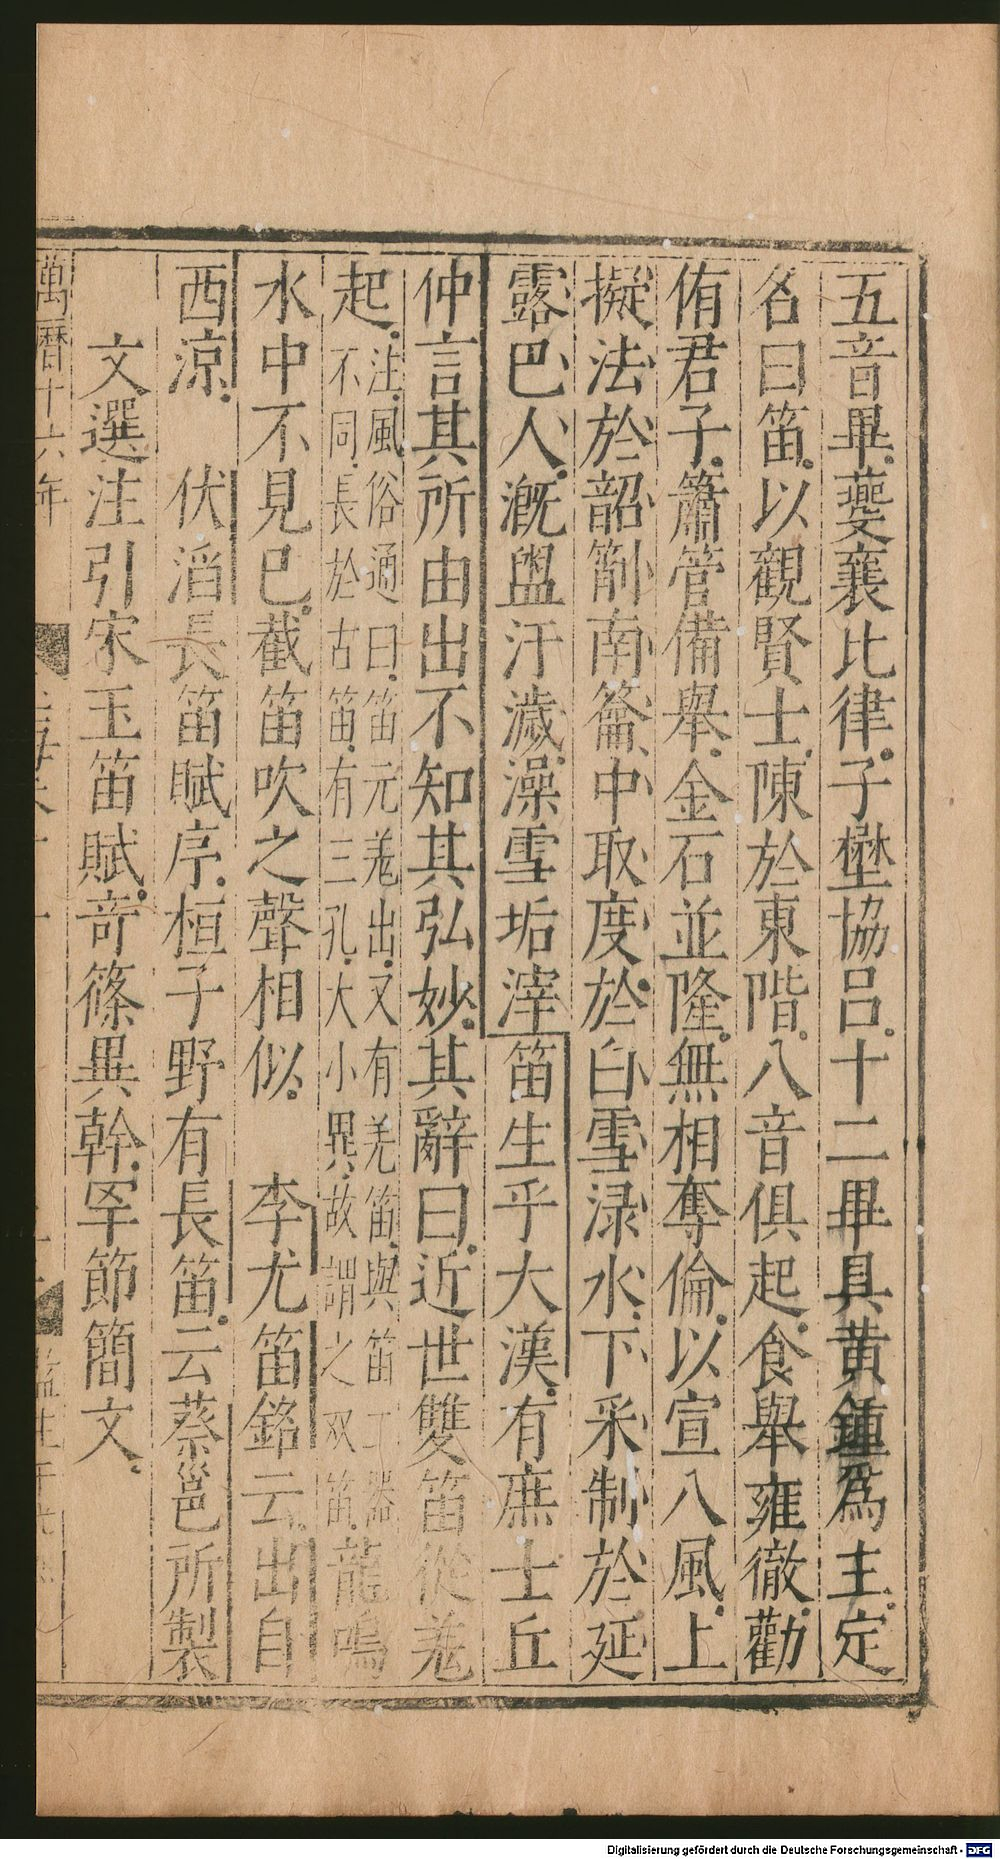 五音畢夔襄比律子壄協呂十二畢具黃鍾爲主定
名曰笛以觀賢士陳於東階八音俱起食舉雍徹勸
侑君子簫管備舉金石並隆無相奪倫以宣八風上
擬法於韶箾南籥中取度於白雪淥水下采制於延
露巴人溉盥汙濊澡雪垢滓笛生乎大漢有庶士丘
仲言其所由出不知其弘妙其辭曰近世雙笛從羌
起注風俗通曰笛元羌出又有羌笛與笛二器
不同長於古笛有三孔大小異故謂之双笛龍鳴
水中不見已截笛吹之聲相似 李尤笛銘云出自
西凉 伏滔長笛賦序桓子野有長笛云蔡邕所製
文選注引宋玉笛賦奇篠異幹罕節簡文
萬曆十六年
監生
Digitalisierung gefördert durch die Deutsche Forschungsgemeinschaft - DFG